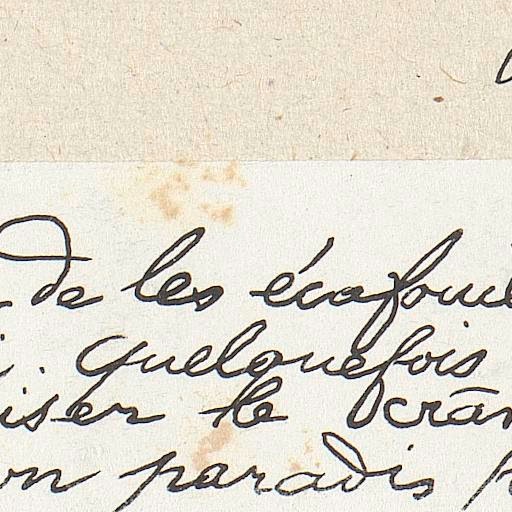 de les écafoui
quelquefois
iser le crân
on paradis p